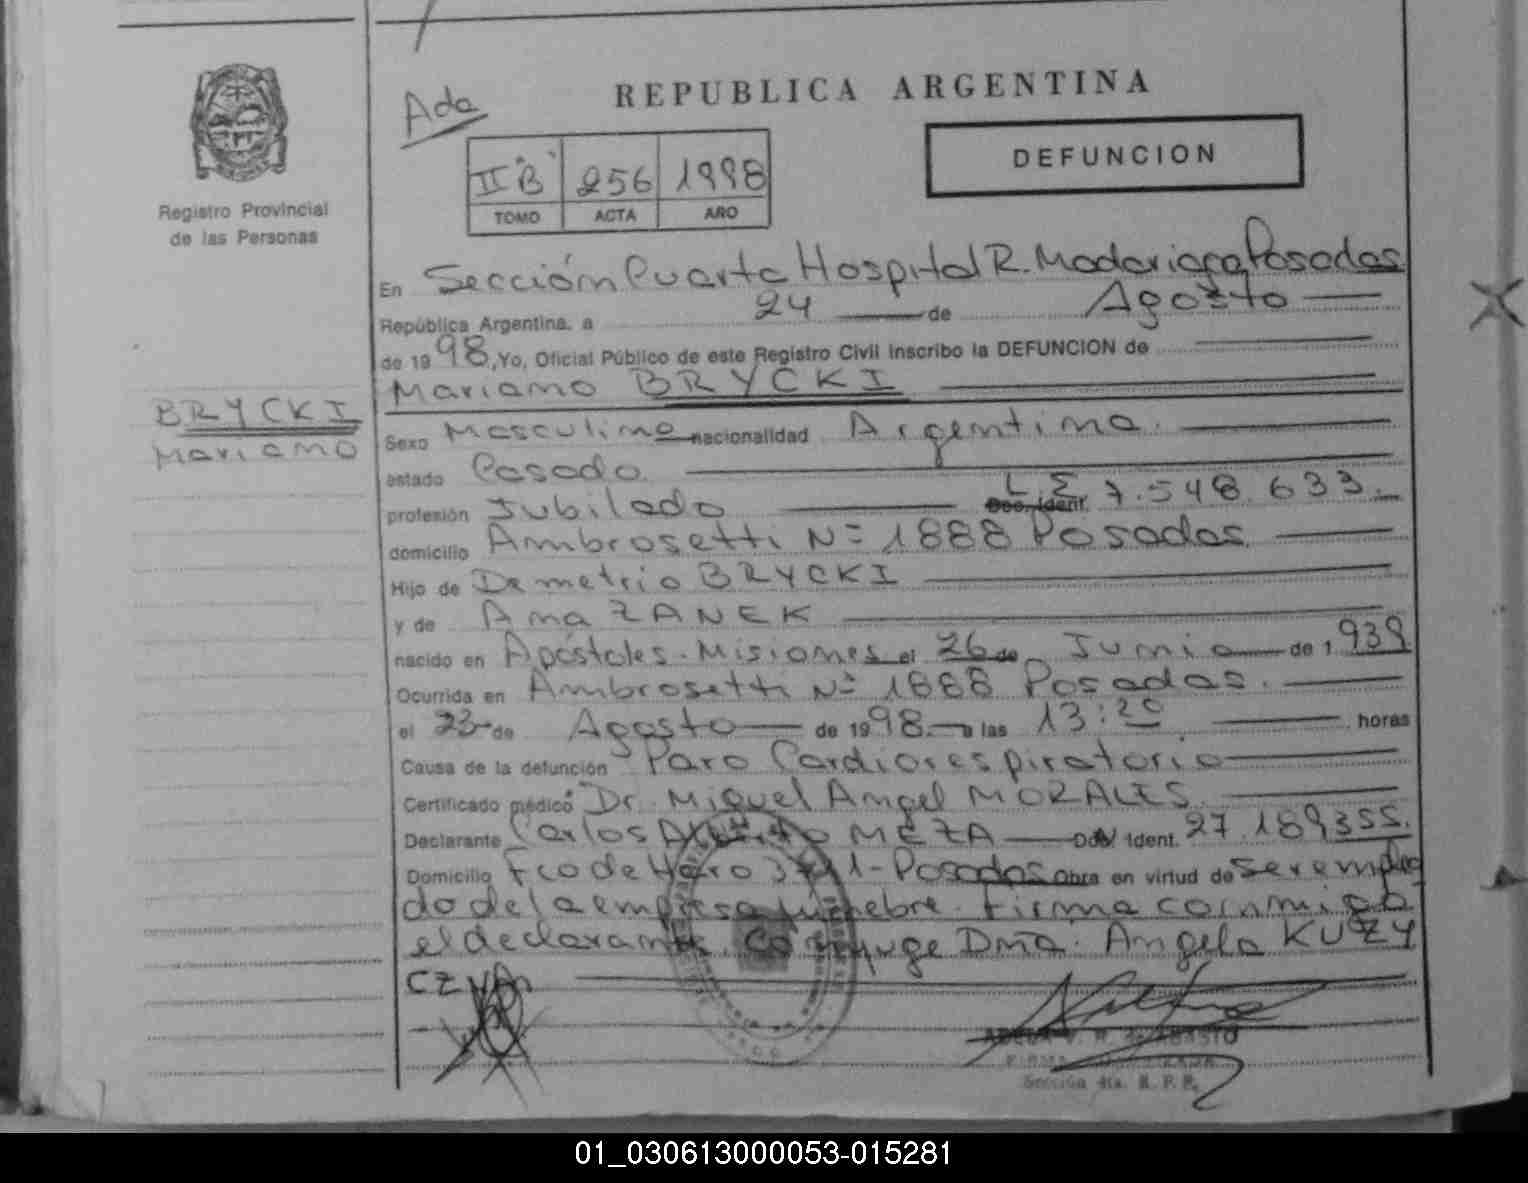 REPUBLICA ARGENTINA
Ada
DEFUNCION
II "B" 256 1998
TOMO ACTA AÑO
Registro Provincial
de las Personas
En Sección Cuarta Hospital R. Madariaga Posadas
República Argentina, a 24 de Agosto
de 1998, Yo, Oficial Público de este Registro Civil inscribo la DEFUNCION de
Mariano BRYCKI
BRYCKI
Mariano
Sexo Masculino nacionalidad Argentina.
estado Casado.
profesión Jubilado Doc. Ident. L E 7.548.633.
domicilio Ambrosetti Nº 1888 Posadas.
Hijo de Demetrio BRYCKI
y de Ana ZANEK
nacido en Apóstoles - Misiones el 26 de Junio de 1.939
Ocurrida en Ambrosetti Nº 1888 Posadas.
el 23 de Agosto de 1998.- a las 13:20 horas
Causa de la defunción Paro Cardiorespiratorio
Certificado médico Dr. Miguel Angel MORALES.
Declarante Carlos MEZA Ident. 27.189355.
Domicilio Fco de Haro - Posadas obra en virtud de ser emplea
do de la empresa fúnebre. Firma conmigo
el declarante. Conyuge Dña. Angela KUZY
CZYN
Sección 4ta. R. P. P.
01_030613000053-015281